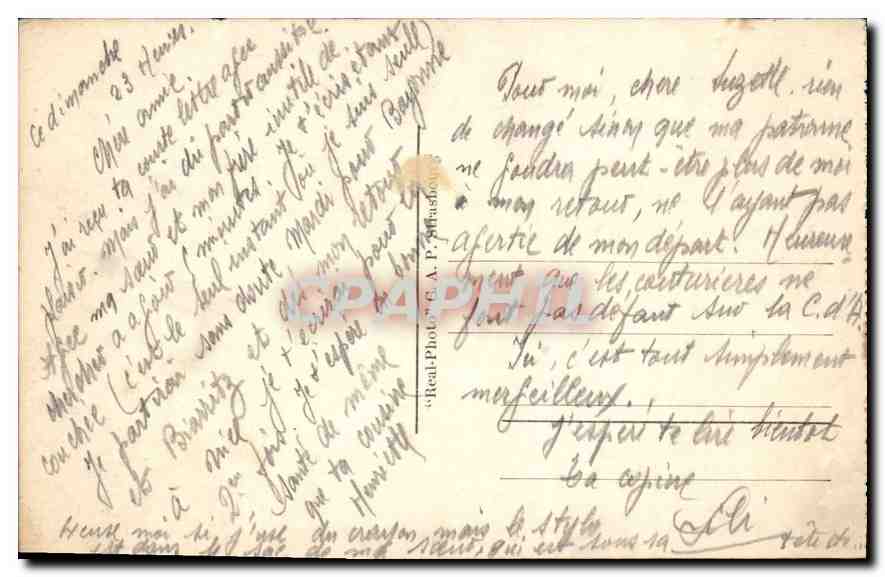 Ce dimanche
23 Heures.
Chère amie
J'ai reçu ta courte lettre avec
plaisir. Mais j'ai dû partir aussitôt
Avec ma sœur et mon frère inutile de
chercher à avoir 5 minutes. Je t'écris étant
couchée (c'est le seul instant où je suis seule
Je partirai sans doute Mardi pour Bayonne
et Biarritz et
à Nice je t'écrirai pour la
2en fois. J'espère
santé de même
que ta cousine
Henriette
Pour moi, chère Suzette. rien
de changé sinon que ma patronne
ne voudra peut-être plus de moi
à mon retour, ne l'ayant pas
avertie de mon départ. Heureuse-
ment que les couturières ne
font pas défaut sur la C. d'A.
Ici, c'est tout simplement
merveilleux.
J'espère te lire bientôt
Ta copine
Lili
Excuse moi si j'use du crayon mais le stylo
est dans le sac de ma sœur, qui est sous sa
tête
"Real-Photo" C. A. P. Strasbourg
CPAPHIL